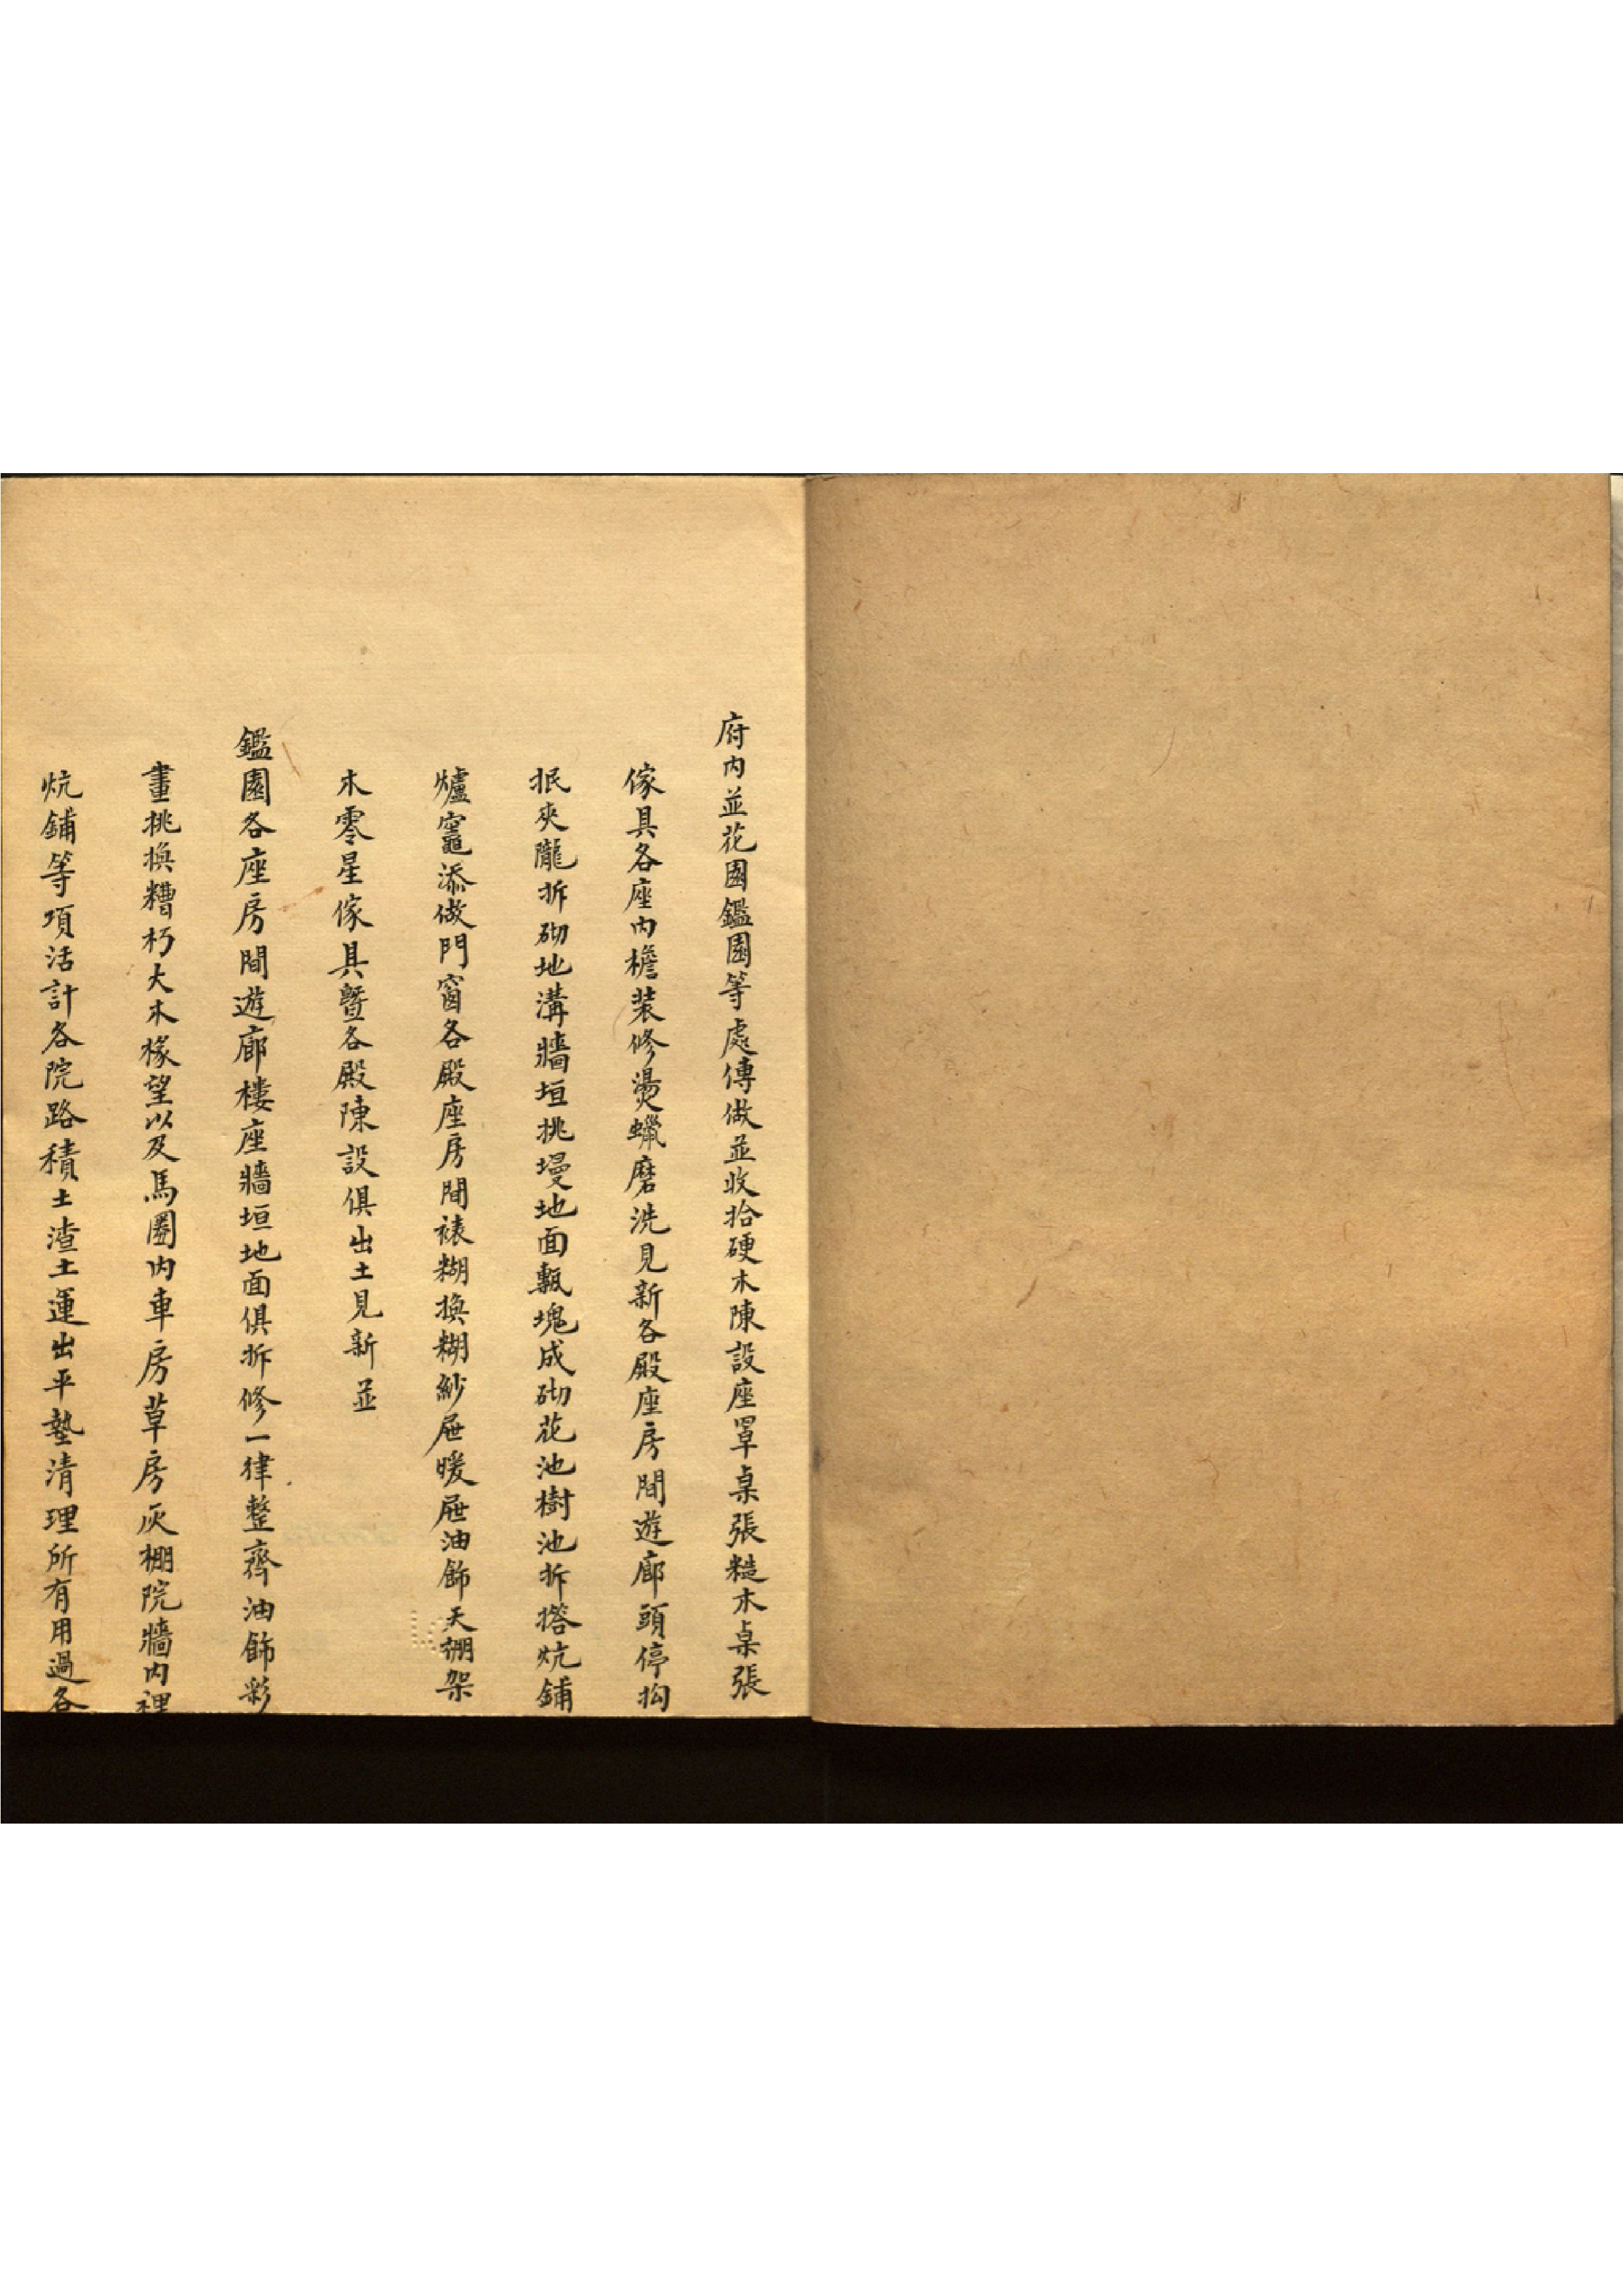 府内並花園鑑園等處傳做並收拾硬木陳設座罩桌張糙木桌張
傢具各座内檐装修燙蠟磨洗見新各殿座房間遊廊頭停抅
抿夾隴拆砌地溝牆垣挑墁地面甎塊成砌花池樹池拆搭炕鋪
爐竈添做門窗各殿座房間裱糊換糊紗屉暖屉油飾天棚架
木零星傢具暨各殿陳設俱出土見新並
鑑園各座房間遊廊樓座牆垣地面俱拆修一律整齊油飾彩
畫挑換糟朽大木椽望以及馬圈内車房草房灰棚院牆内裡
炕鋪等項活計各院路積土渣土運出平墊清理所有用過各